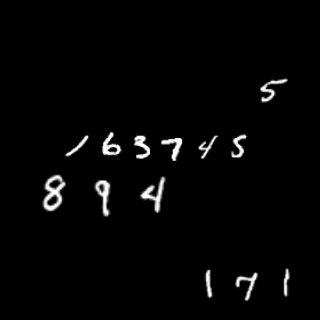 5
163745
894
171